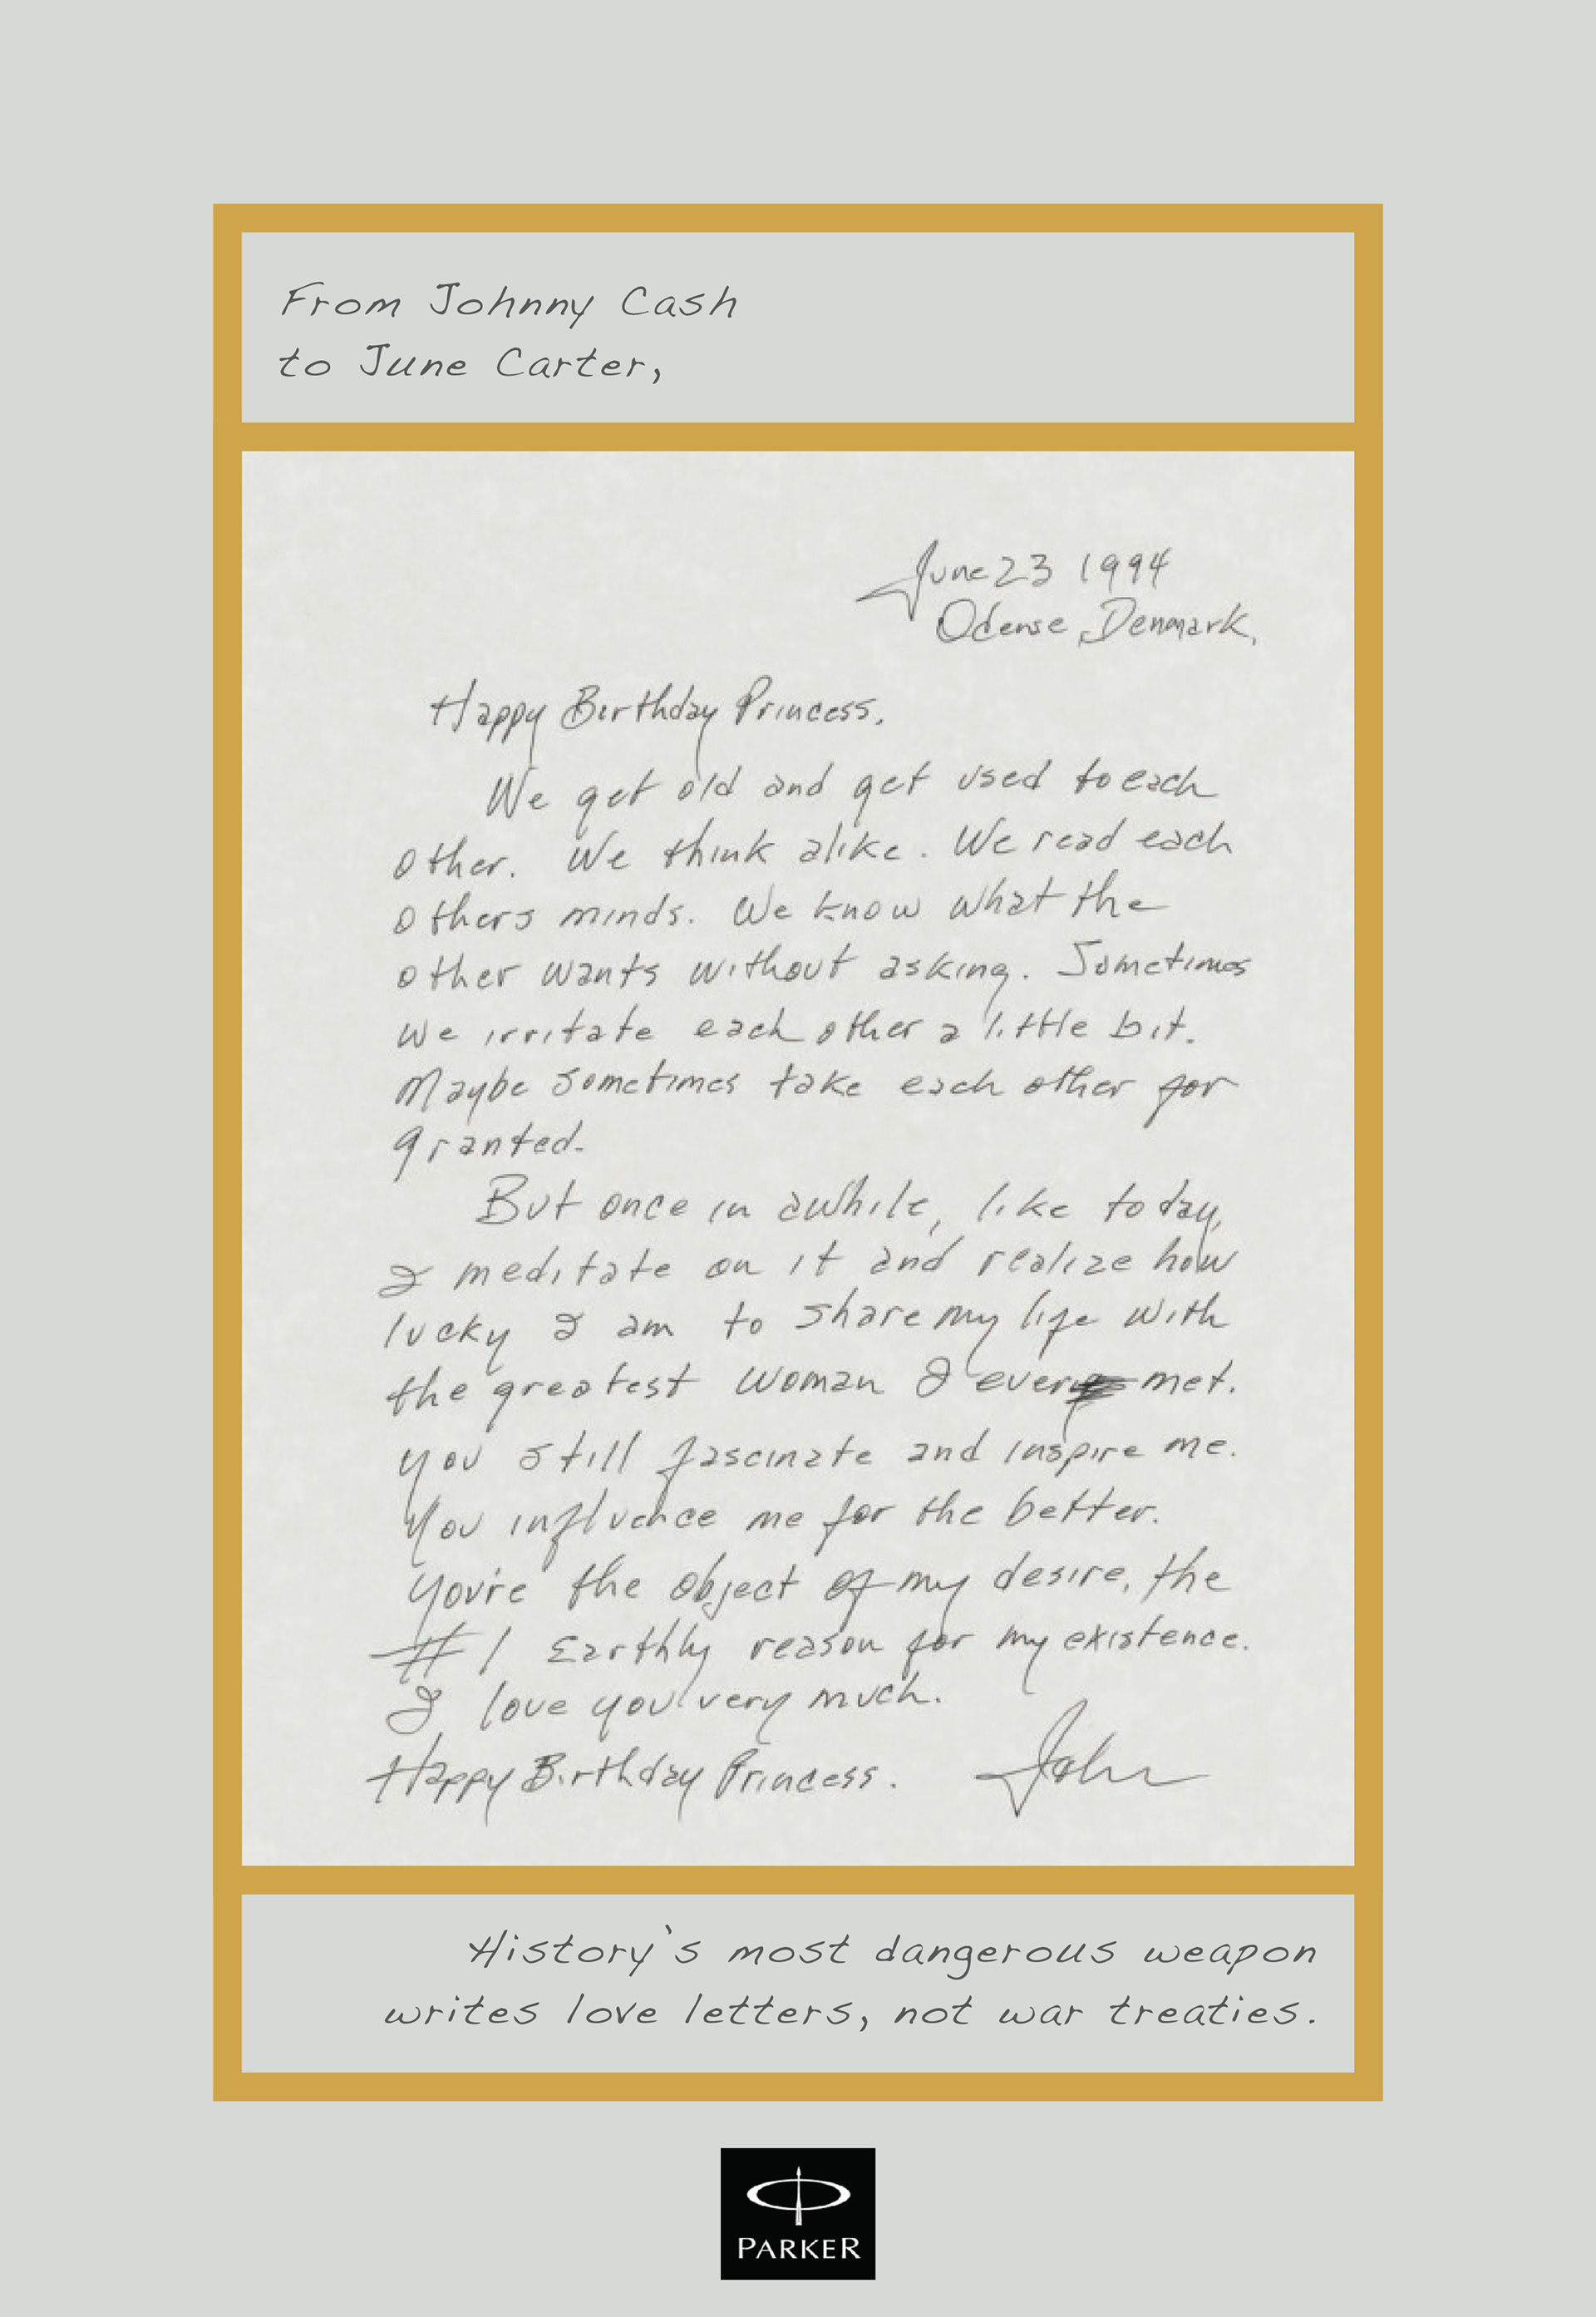 From Johnny Cash
to June Carter,
June 23 1994
Odense, Denmark.
Happy Birthday Princess.
We get old and get used to each
other. We think alike. We read each
others minds. We know what the
other wants without asking. Sometimes
we irritate each other a little bit.
Maybe sometimes take each other for
granted.
But once in awhile, like today,
I meditate on it and realize how
lucky I am to share my life with
the greatest woman I ever met.
You still fascinate and inspire me.
You influence me for the better.
You're the object of my desire, the
#1 Earthly reason for my existence.
I love you very much.
Happy Birthday Princess.
John
History's most dangerous weapon
writes love letters, not war treaties.
PARKER